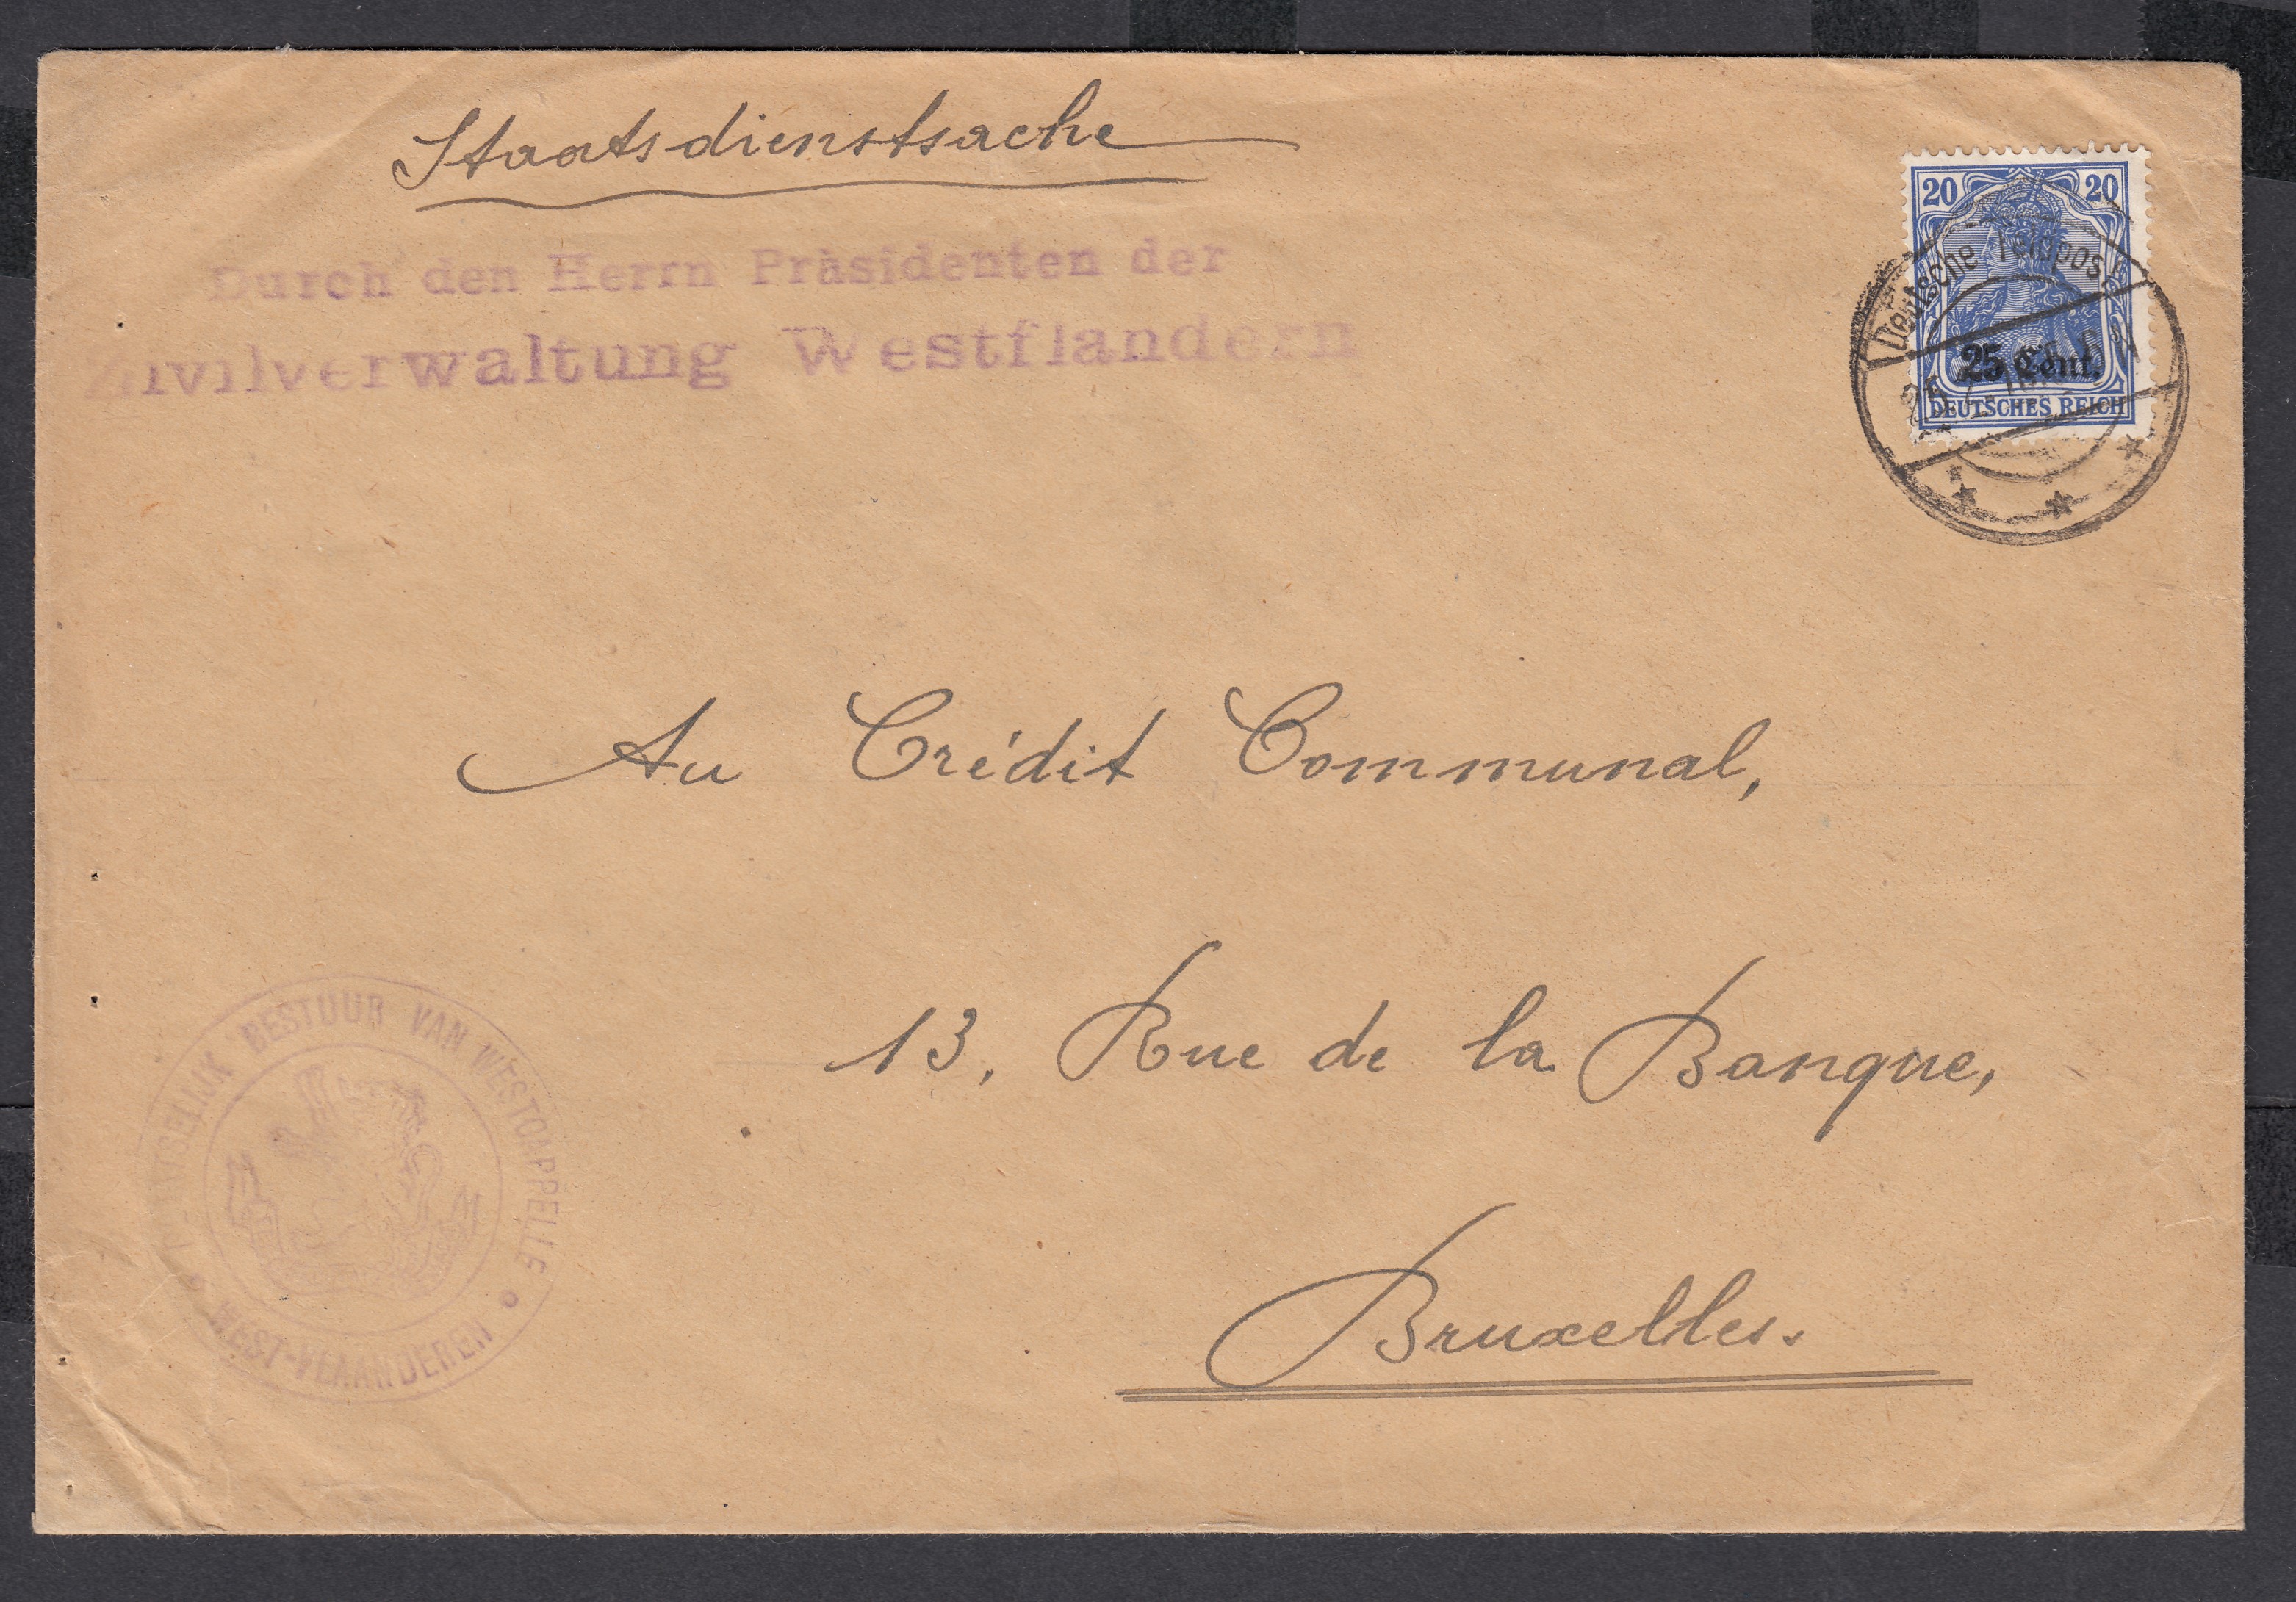 Staatsdienstsache
Durch den Herrn Präsidenten der
Zivilverwaltung Westflandern
20 20
Deutsche Feldpost
25 Cent.
DEUTSCHES REICH
Au Crédit Communal,
13, Rue de la Banque,
Bruxelles.
BESTUUR VAN WESTCAPPELLE
WEST-VLAANDEREN